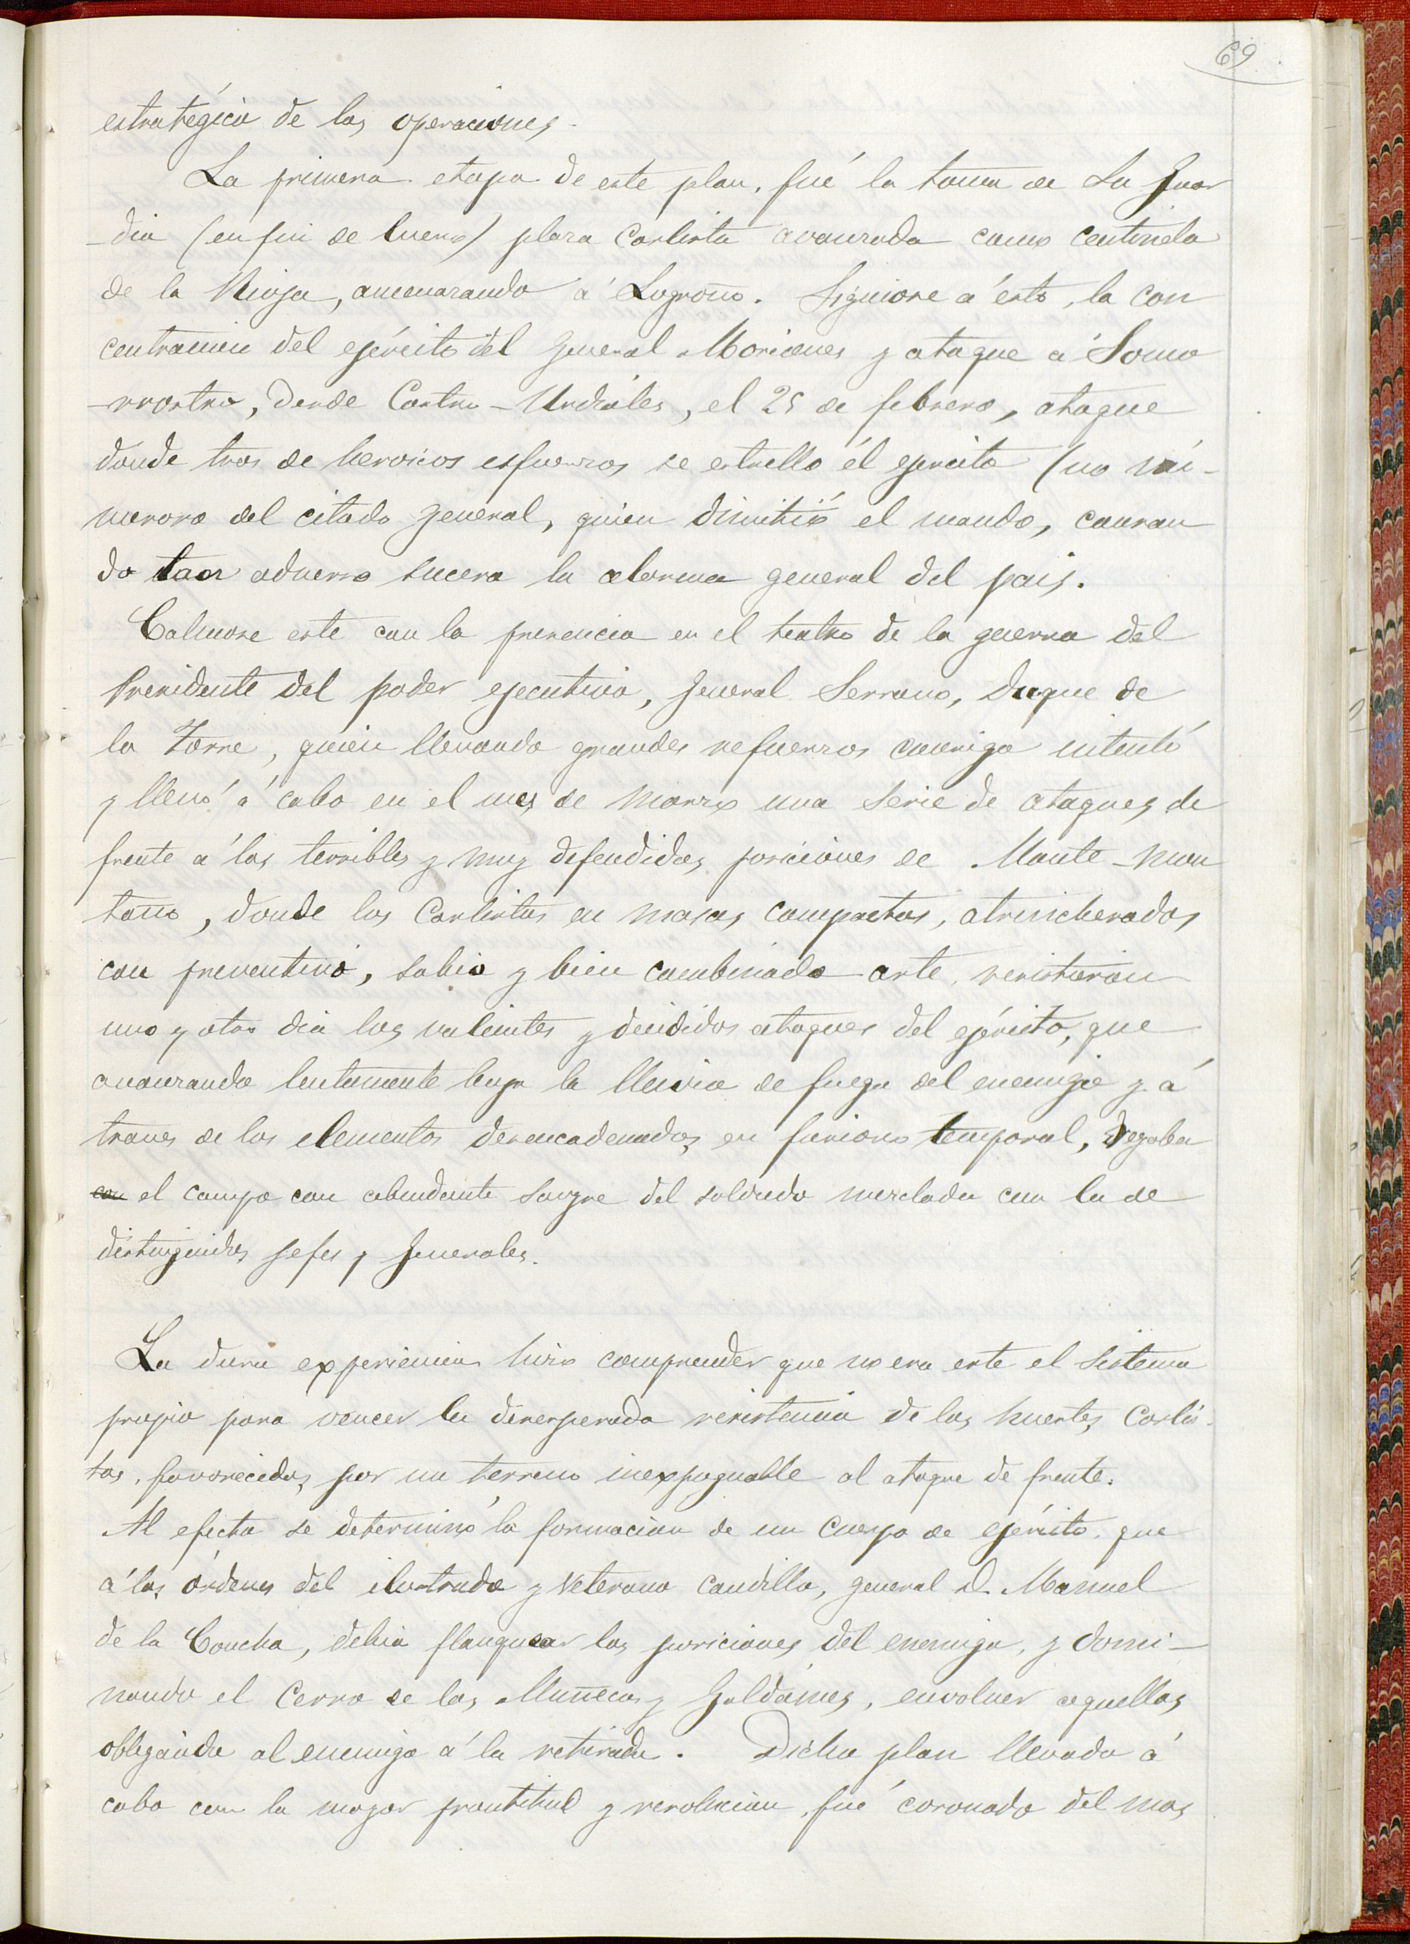 69
estratégico de las operaciones.
La primera etapa de este plan, fué la toma de La Guar
-dia (en fin de Enero) plaza Carlista avanzada como centinela
de la Rioja, amenazando á Logroño. Siguiose á ésto, la con
centracion del ejército del General Moriones y ataque a Somo
-rrostro, desde Castro-Urdiales, el 25 de febrero, ataque
donde tras de heroicos esfuerzos se estrelló él ejercito (no nú-
meroso del citado General, quien dimitió el mando, causan
do tan adverso suceso la alarma general del pais.
Calmose este con la presencia en el teatro de la guerra del
Presidente del poder ejecutivo, General Serrano, Duque de
la Torre, quien llevando grandes refuerzos consigo intentó
y llevó á cabo en el mes de Marzo una serie de ataques de
frente a las terribles y muy defendidas posiciones de Monte-mon
taño, donde los Carlistas en masas compactas, atrincherados
con preventivo, sabio y bien combinado arte, resistieron
uno y otro dia los valientes y decididos ataques del ejército, que
avanzando lentamente bajo la lluvia de fuego del enemigo y á
traves de los elementos desencadenados en furioso temporal, regaba
con el campo con abundante sangre del soldado mezclada con la de
distinguidos Jefes y Generales.
La dura experiencia hizo comprender que no era este el sistema
propio para vencer la desesperada resistencia de las huestes Carlis-
tas, favorecidas por un terreno inexpugnable al ataque de frente.
Al efecto se determinó la formacion de un Cuerpo de ejército, que
á las órdenes del ilustrado y veterano Caudillo, general D. Manuel
de la Concha, debia flanquear las posiciones del enemigo, y domi-
nando el Cerro de las Muñecas y Galdámes, envolver aquellas
obligando al enemigo á la retirada. Dicho plan llevado á
cabo con la mayor prontitud y resolucion, fué coronado del mas